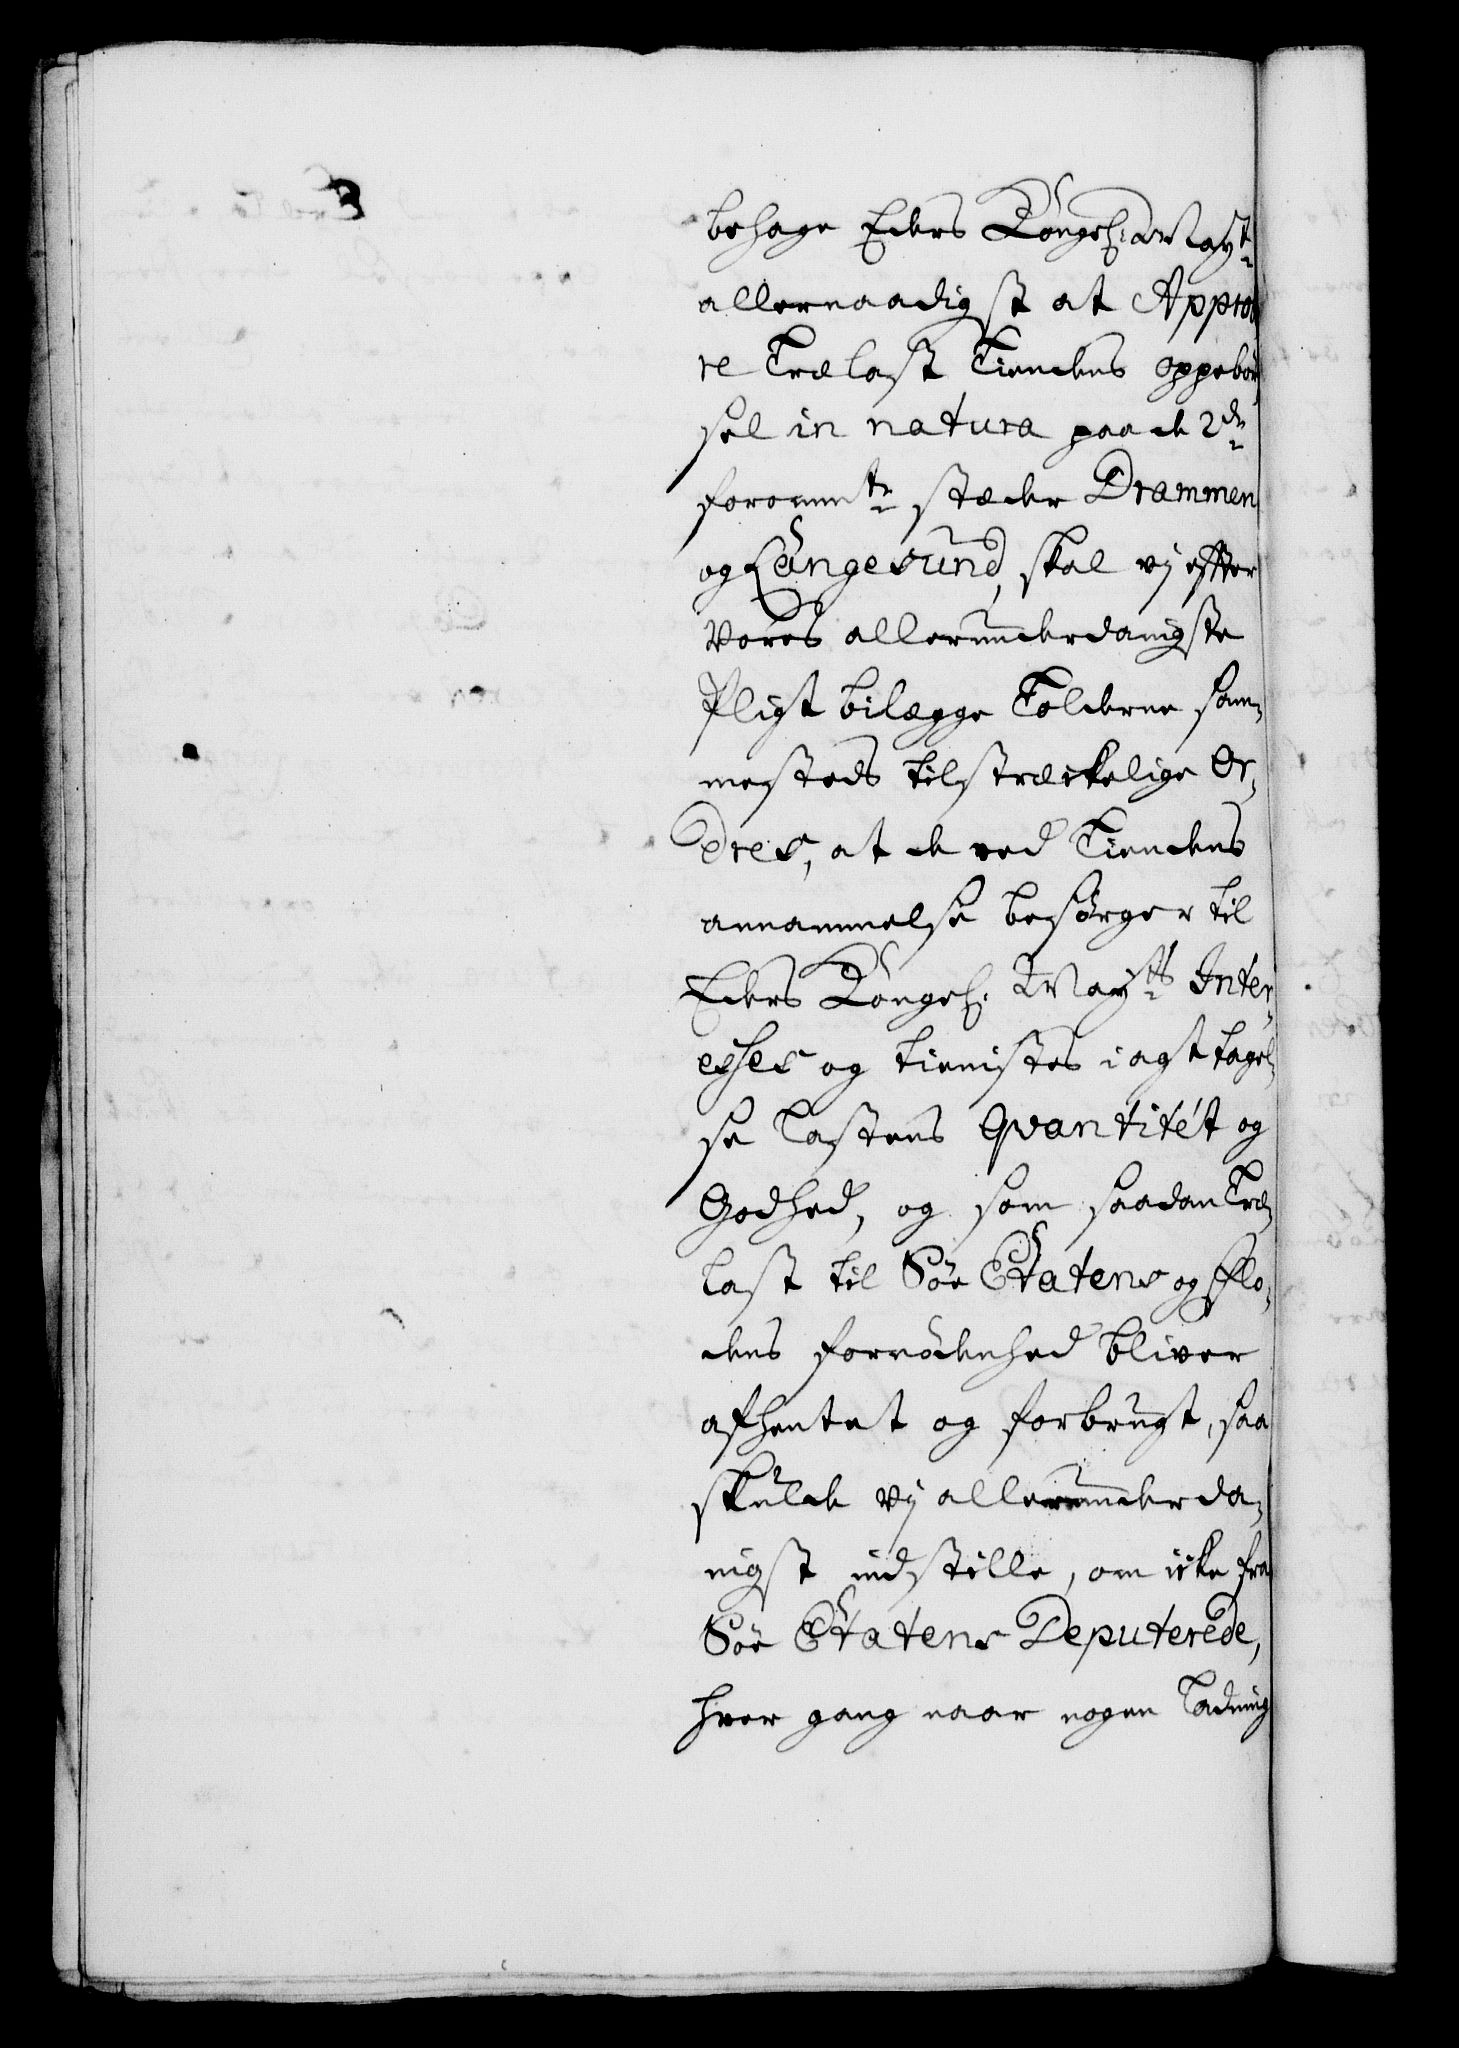 behage Eders Kongel: May:t
allernaadigst at Appro
re Trælast Tiendens oppebør,
sel in natura paa de 2de
forommte stæder Drammen
og Langesund, skal vj efter
Vores allerunderdanigste
Pligt bilægge Tolderne sam,
mesteds tilstræckelige Or,
dres, at de ved Tiendens
annammelse besørger til
Eders Kongel: May:ts Inter,
esses og tienistes iagttagel,
se Lastens Qvantitét og
Godhed, og som saadan Træ,
last til Søe Etatens og Flo,
dens fornødenhed bliver
afhentet og forbrugt, saa
skulde vj allerunderda,
nigst indstille, om icke fra
Søe Etatens Deputerede,
hver gang naar nogen Ladning